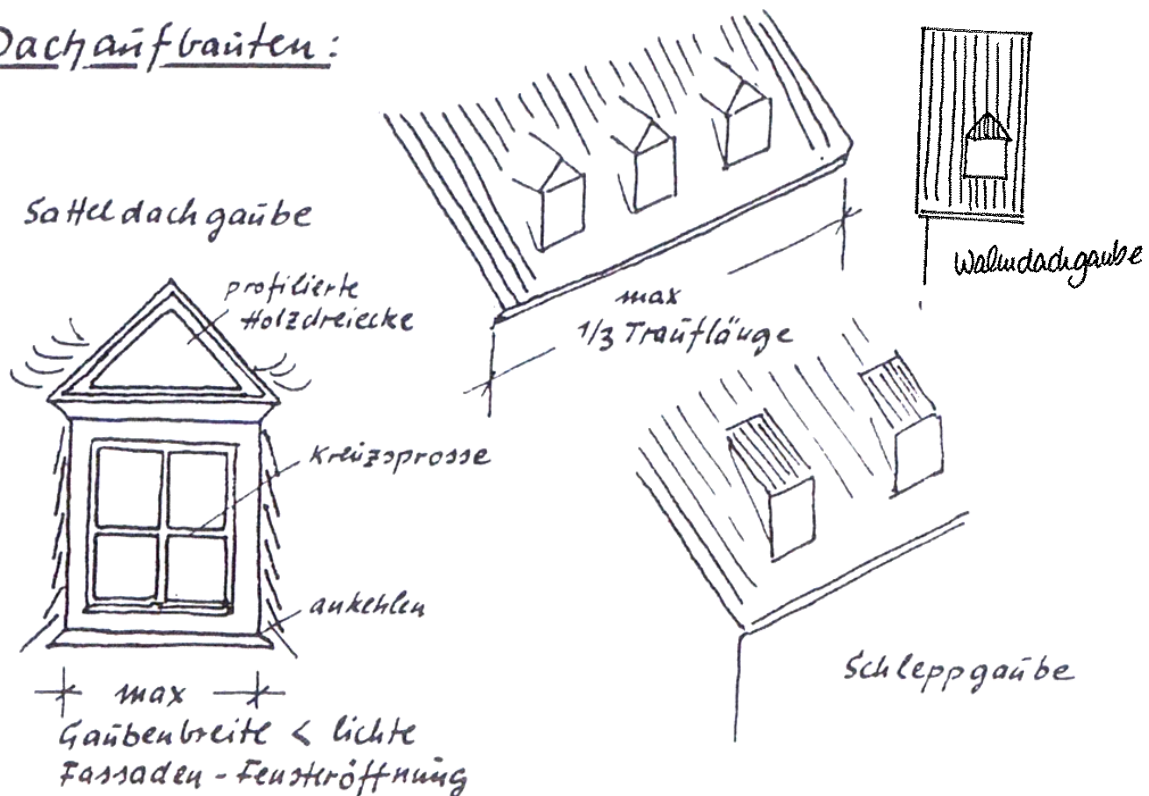 Dachaufbauten:
Satteldachgaube
profilierte
Holzdreiecke
Kreuzsprosse
ankehlen
max
Gaubenbreite < lichte
Fassaden-Fensteröffnung
max
1/3 Trauflänge
Walmdachgaube
Schleppgaube